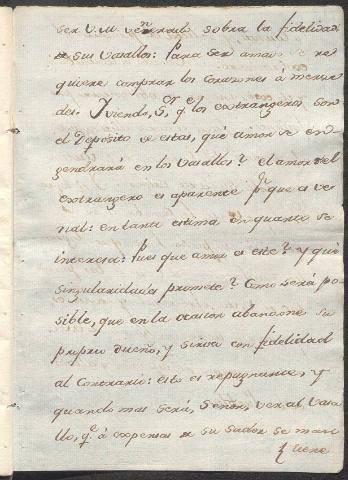 ser V.M. venerado sobra la fidelidad
de sus Vasallos: Para ser amado re
quiere comprar los Corazones á merce
des. Y viendo, S.or q.e los extrangeros son
el Deposito de estas, qué amor se en
gendrará en los Vasallos? el amor del
extrangero es aparente p.r que es ve
nal: en tanto estima en quanto se
interesa: Pues que amor es este? y qué
singularidades promete? Como será po
sible, que en la ocasion abandone su
proprio dueño, y sirva con fidelidad
al Contrario: esto es repugnante, y
quando mas será, Señor, ver al Vasa
llo, q.e á expensas de su sudor se man
tiene